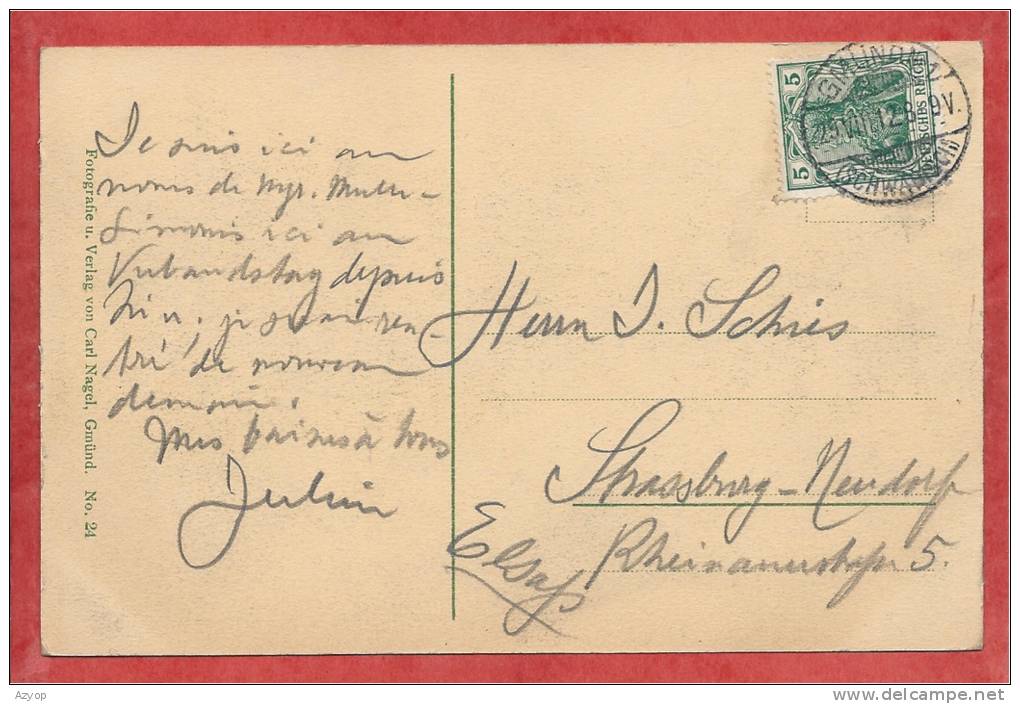 Je suis ici au
noms de Mgr. Muller-
Simonis ici au
Verbandstag depuis
hier. je serai ren-
tré de nouveau
demain.
Mes baises à tous
Julien
Fotografie u. Verlag von Carl Nagel, Gmünd. No. 24
5 5
DEUTSCHES REICH
GMÜND
VIII.12.8-9V.
(SCHWÄBISCH)
Herrn J. Schies
Strassburg-Neudorf
Elsaß
Rheinauerstraße 5.
Azyop
www.delcampe.net